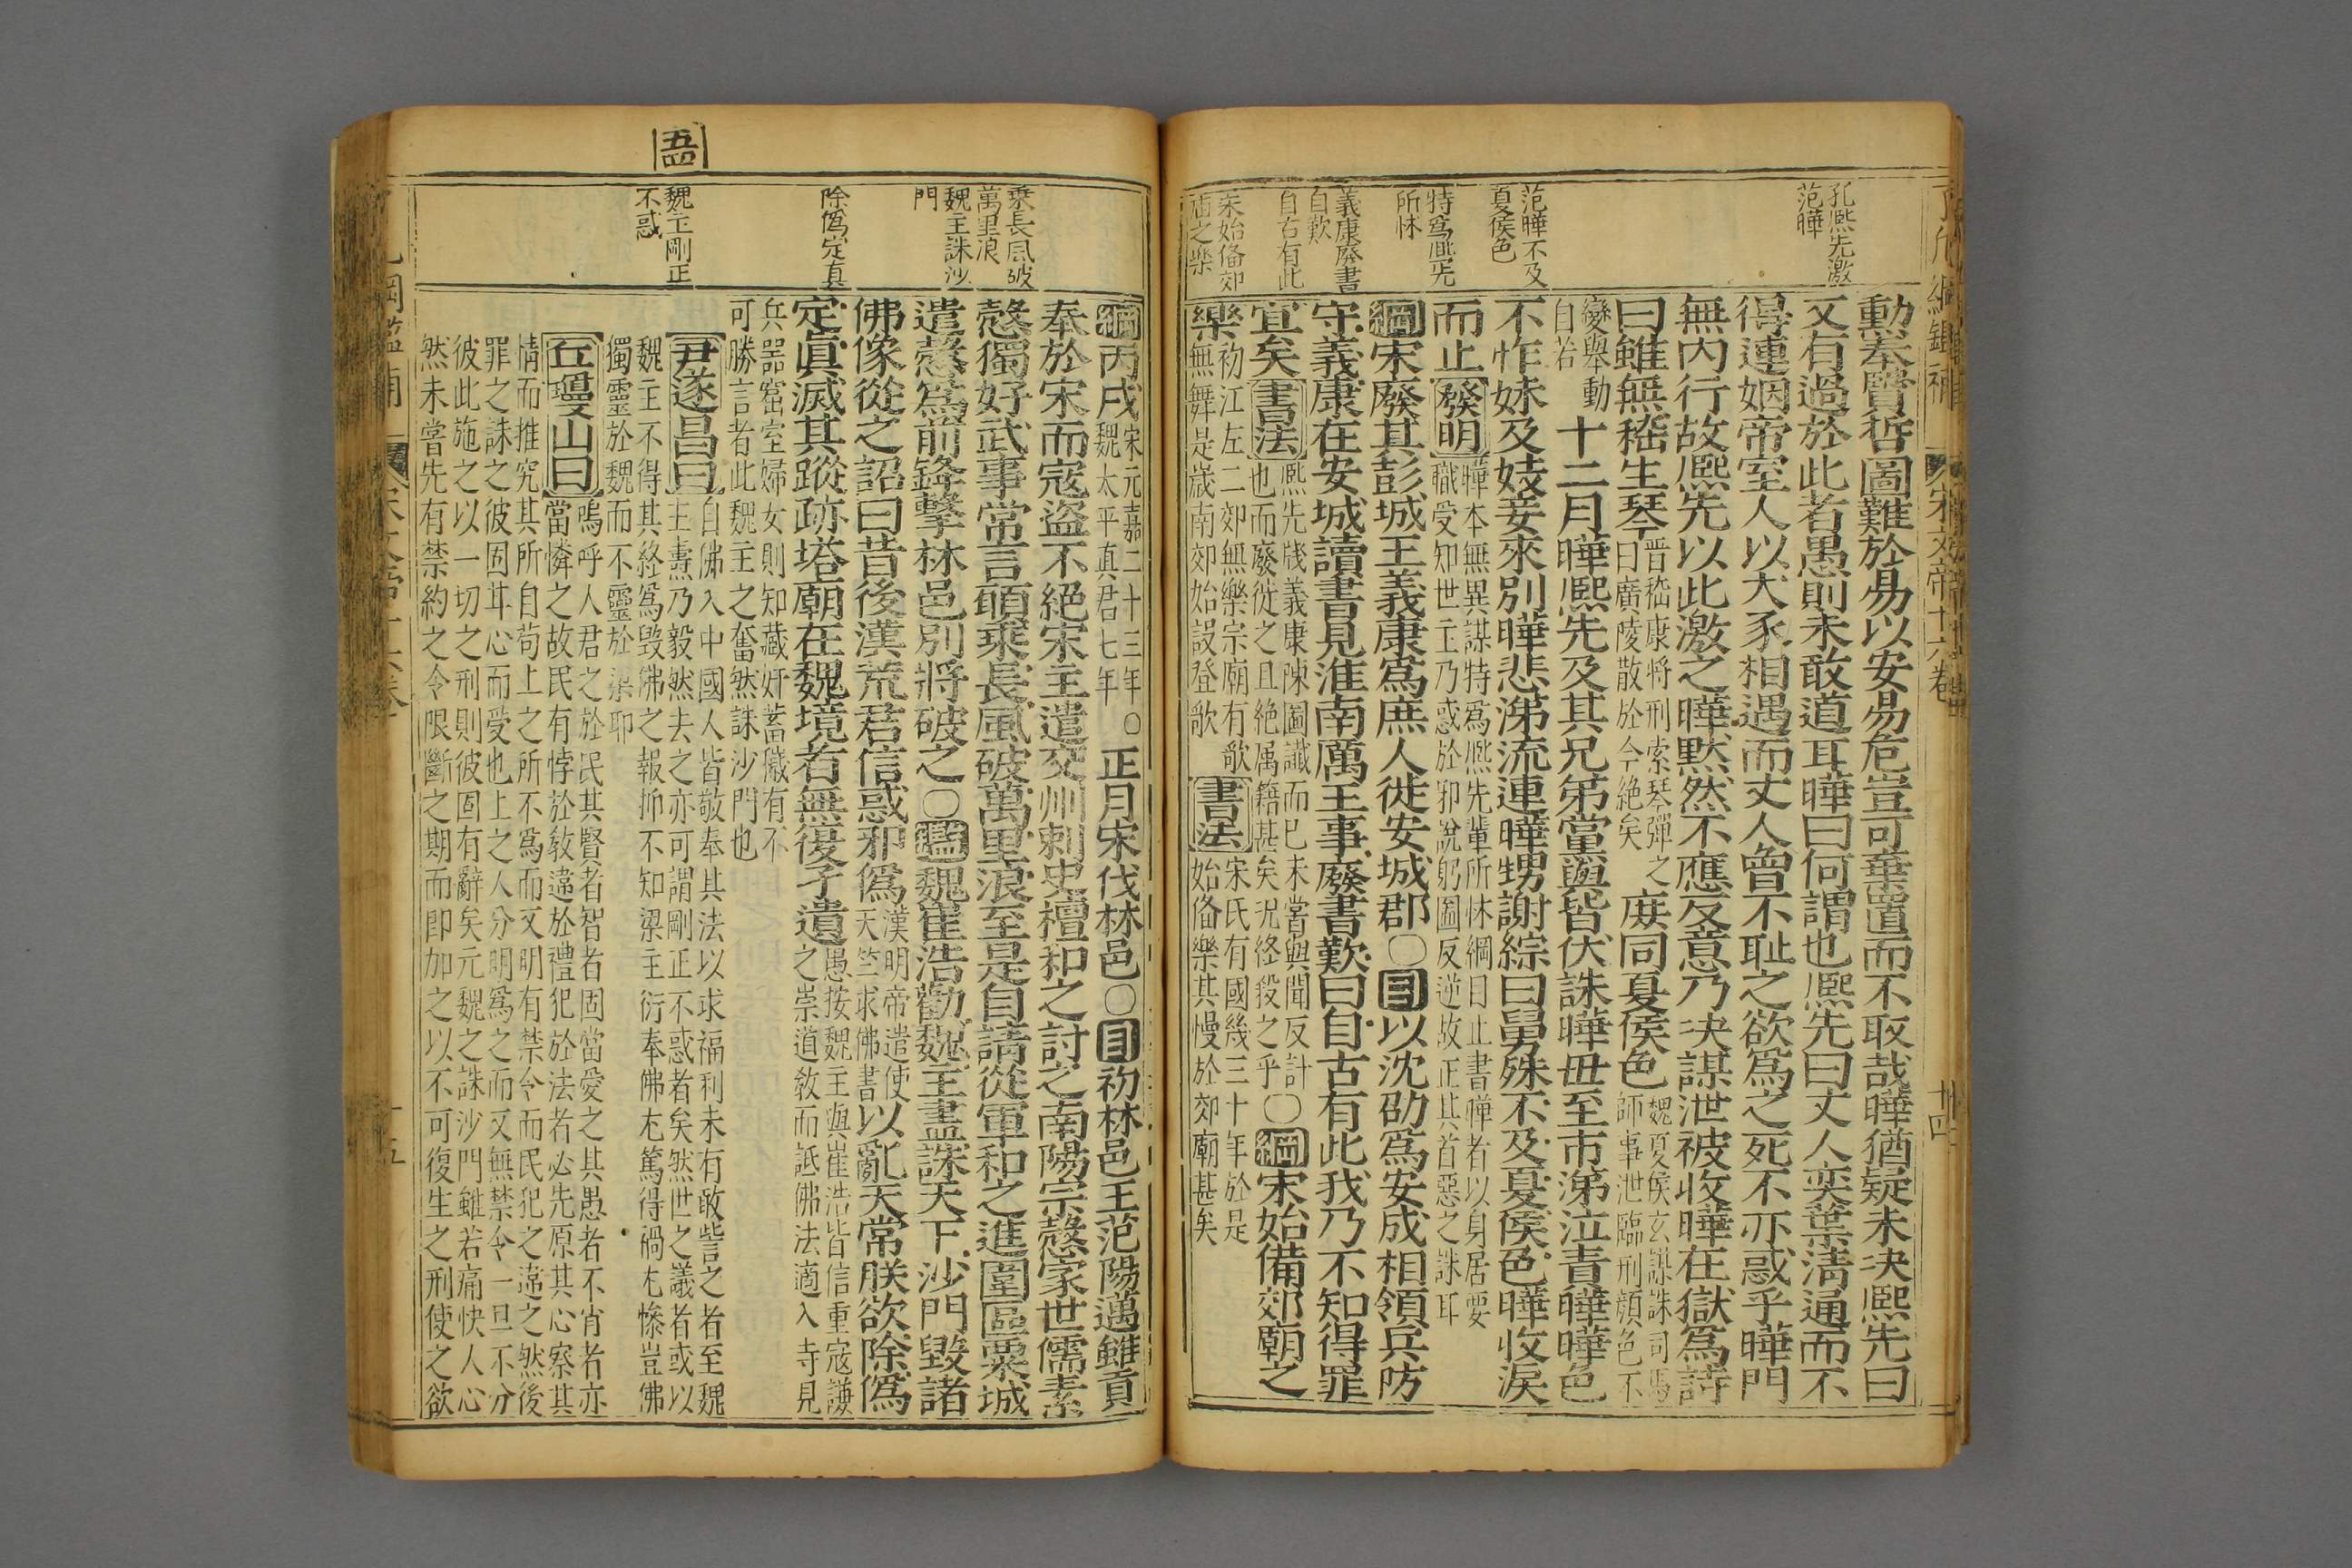 了凡綱鑑補
宋文帝十六卷
孔熙先激
范曄
范曄不及
夏侯色
特爲熙先
所怵
義康廢書
自歎
自古有此
宋始俻郊
庙之樂
勳奉賢哲圖難於易以安易危豈可棄置而不取哉曄猶疑未決熙先曰
又有過於此者愚則未敢道耳曄曰何謂也熙先曰丈人奕葉清通而不
得連姻帝室人以犬豕相遇而丈人曾不耻之欲爲之死不亦惑乎曄門
無内行故熙先以此激之曄默然不應反意乃決謀泄被收曄在獄爲詩
曰雖無嵇生琴
晋嵇康將刑索琴彈之
曰廣陵散於今絶矣
庻同夏侯色
魏夏侯玄謀誅司馬
師事泄臨刑顔色不
變舉動
自若
十二月曄熙先及其兄弟黨與皆伏誅曄毋至市涕泣責曄曄色
不怍妹及妓妾來別曄悲涕流連曄甥謝綜曰舅殊不及夏侯色曄收淚
而止
發明
曄本無異謀特爲熙先輩所怵綱目止書曄者以身居要
職受知世主乃惑於邪說躬圖反逆故正其首惡之誅耳
綱宋廢其彭城王義康爲庶人徙安城郡〇目以沈劭爲安成相領兵防
守義康在安城讀書見淮南厲王事廢書歎曰自古有此我乃不知得罪
宜矣
書法
熙先牋義康陳圖讖而已未嘗與聞反計
也而廢徙之且絶属籍甚矣况終殺之乎
〇綱宋始備郊廟之
樂
初江左二郊無樂宗廟有歌
無舞是嵗南郊始設登歌
書法
宋氏有國幾三十年於是
始俻樂其慢於郊廟甚矣
乘長風破
萬里浪
魏主誅沙
門
除僞定真
魏主剛正
不惑
綱丙戌
宋元嘉二十三年〇
魏太平真君七年
正月宋伐林邑〇目初林邑王范陽邁雖貢
奉於宋而寇盗不絕宋主遣交州刺史檀和之討之南陽宗慤家世儒素
慤獨好武事常言願乘長風破萬里浪至是自請從軍和之進圍區粟城
遣慤爲前鋒擊林邑別將破之〇鑑魏崔浩勸魏主盡誅天下沙門毀諸
佛像從之詔曰昔後漢荒君信惑邪僞
漢明帝遣使
天竺求佛書
以亂天常朕欲除僞
定眞滅其蹤跡塔廟在魏境者無復孑遺
愚按魏主與崔浩皆信重寇謙
之崇道敎而詆佛法適入寺見
兵噐窟室婦女則知藏奸蓄儎有不
可勝言者此魏主之奮然誅沙門也
尹遂昌曰
自佛入中國人皆敬奉其法以求福利未有敢訾之者至魏
主燾乃毅然去之亦可謂剛正不惑者矣然世之議者或以
魏主不得其終爲毁佛之報抑不知梁主衍奉佛尤篤得禍尤慘豈佛
獨靈於魏而不靈於梁耶
丘瓊山曰
嗚呼人君之於民其賢者智者固當愛之其愚者不肖者亦
當憐之故民有悖於敎違於禮犯於法者必先原其心察其
情而推究其所自苟上之所不爲而又明有禁令而民犯之違之然後
罪之誅之彼固甘心而受也上之人分明爲之而又無禁令一旦不分
彼此施之以一切之刑則彼固有辭矣元魏之誅沙門雖若痛快人心
然未嘗先有禁約之令限斷之期而即加之以不可復生之刑使之欲